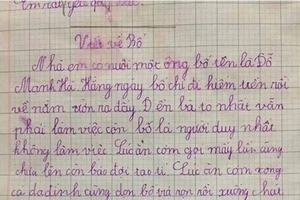 Em rất yêu quý
Viết về Bố
Nhà em có nuôi một ông bố tên là Đỗ
Mạnh Hà. Hằng ngày bố chỉ đi kiếm uền rồi
về nằm ườn ra đấy Đến bà to nhất vẫn
phải làm việc còn bố là người duy nhất
không làm việc Lúc ăn cơm gọi mấy lần cũng
chưa lên còn bảo đợi tao tí Lúc ăn cơm xong
cả gia đình cùng dọn bố vừa rồi xuống